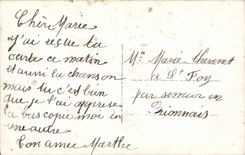 Chéri Marie
J'ai reçue ta
carte ce matin
et aussi la chanson
mais tu c'est bien
que je l'ai apprise
la bas copie moi en
une autre
Ton amie Marthe
Mlle Marie Thevenet
a St Foy
par semur en
Brionnais